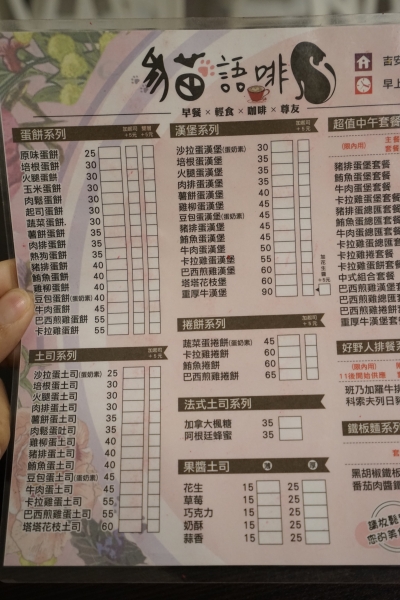 貓語啡
早餐 × 輕食 × 咖啡 × 尊友
吉安
早上
蛋餅系列
加起司 +5元
雙蛋 +5元
原味蛋餅 25
培根蛋餅 30
火腿蛋餅 30
玉米蛋餅 30
肉鬆蛋餅 30
起司蛋餅 30
蔬菜蛋餅 30
薯餅蛋餅 35
肉排蛋餅 35
熱狗蛋餅 35
豬排蛋餅 40
鮪魚蛋餅 40
雞柳蛋餅 40
豆包蛋餅(蛋奶素) 40
牛肉蛋餅 45
巴西煎蛋餅 55
卡拉蛋餅 55
土司系列
加起司 +5元
沙拉蛋土司(蛋奶素) 25
培根蛋土司 30
火腿蛋土司 30
肉排蛋土司 30
薯餅蛋土司 30
肉鬆蛋吐司 35
雞柳蛋土司 40
豬排蛋土司 40
鮪魚蛋土司 40
豆包蛋土司(蛋奶素) 45
牛肉蛋土司 40
卡拉蛋土司 55
巴西煎雞蛋土司 55
塔塔花枝土司 60
漢堡系列
加起司 +5元
沙拉蛋漢堡(蛋奶素) 30
培根蛋漢堡 35
火腿蛋漢堡 35
肉排蛋漢堡 35
薯餅蛋漢堡 40
雞柳蛋漢堡 40
豆包蛋漢堡(蛋奶素) 45
豬排蛋漢堡 45
鮪魚蛋漢堡 45
牛肉蛋漢堡 50
卡拉雞蛋漢堡 55
巴西煎雞漢堡 60
塔塔花枝堡 60
重厚牛漢堡 90
加花生醬 +5元
捲餅系列
加起司 +5元
蔬菜蛋捲餅(蛋奶素) 45
卡拉雞捲餅 60
鮪魚捲餅 60
巴西煎雞捲餅 65
法式土司系列
加拿大楓糖 35
阿根廷蜂蜜 35
果醬土司 薄 厚
花生 15 25
草莓 15 25
巧克力 15 25
奶酥 15 25
蒜香 15 25
超值中午套餐
(限內用)
主餐
套餐
豬排蛋堡套餐
鮪魚蛋堡套餐
牛肉蛋堡套餐
卡拉雞蛋堡套餐
豬肉蛋總匯套餐
鮪魚蛋總匯套餐
牛肉蛋總匯套餐
卡拉雞蛋總匯
中式組合套餐
巴西煎雞漢堡
巴西煎雞總匯
巴西煎雞捲餅
重厚牛漢堡套
好野人排餐系
(限內用)
11後開始供應
班乃加羅牛排
科索夫列日豬
鐵板麵系列
黑胡椒鐵板
番茄肉醬鐵
請放鬆
您的美